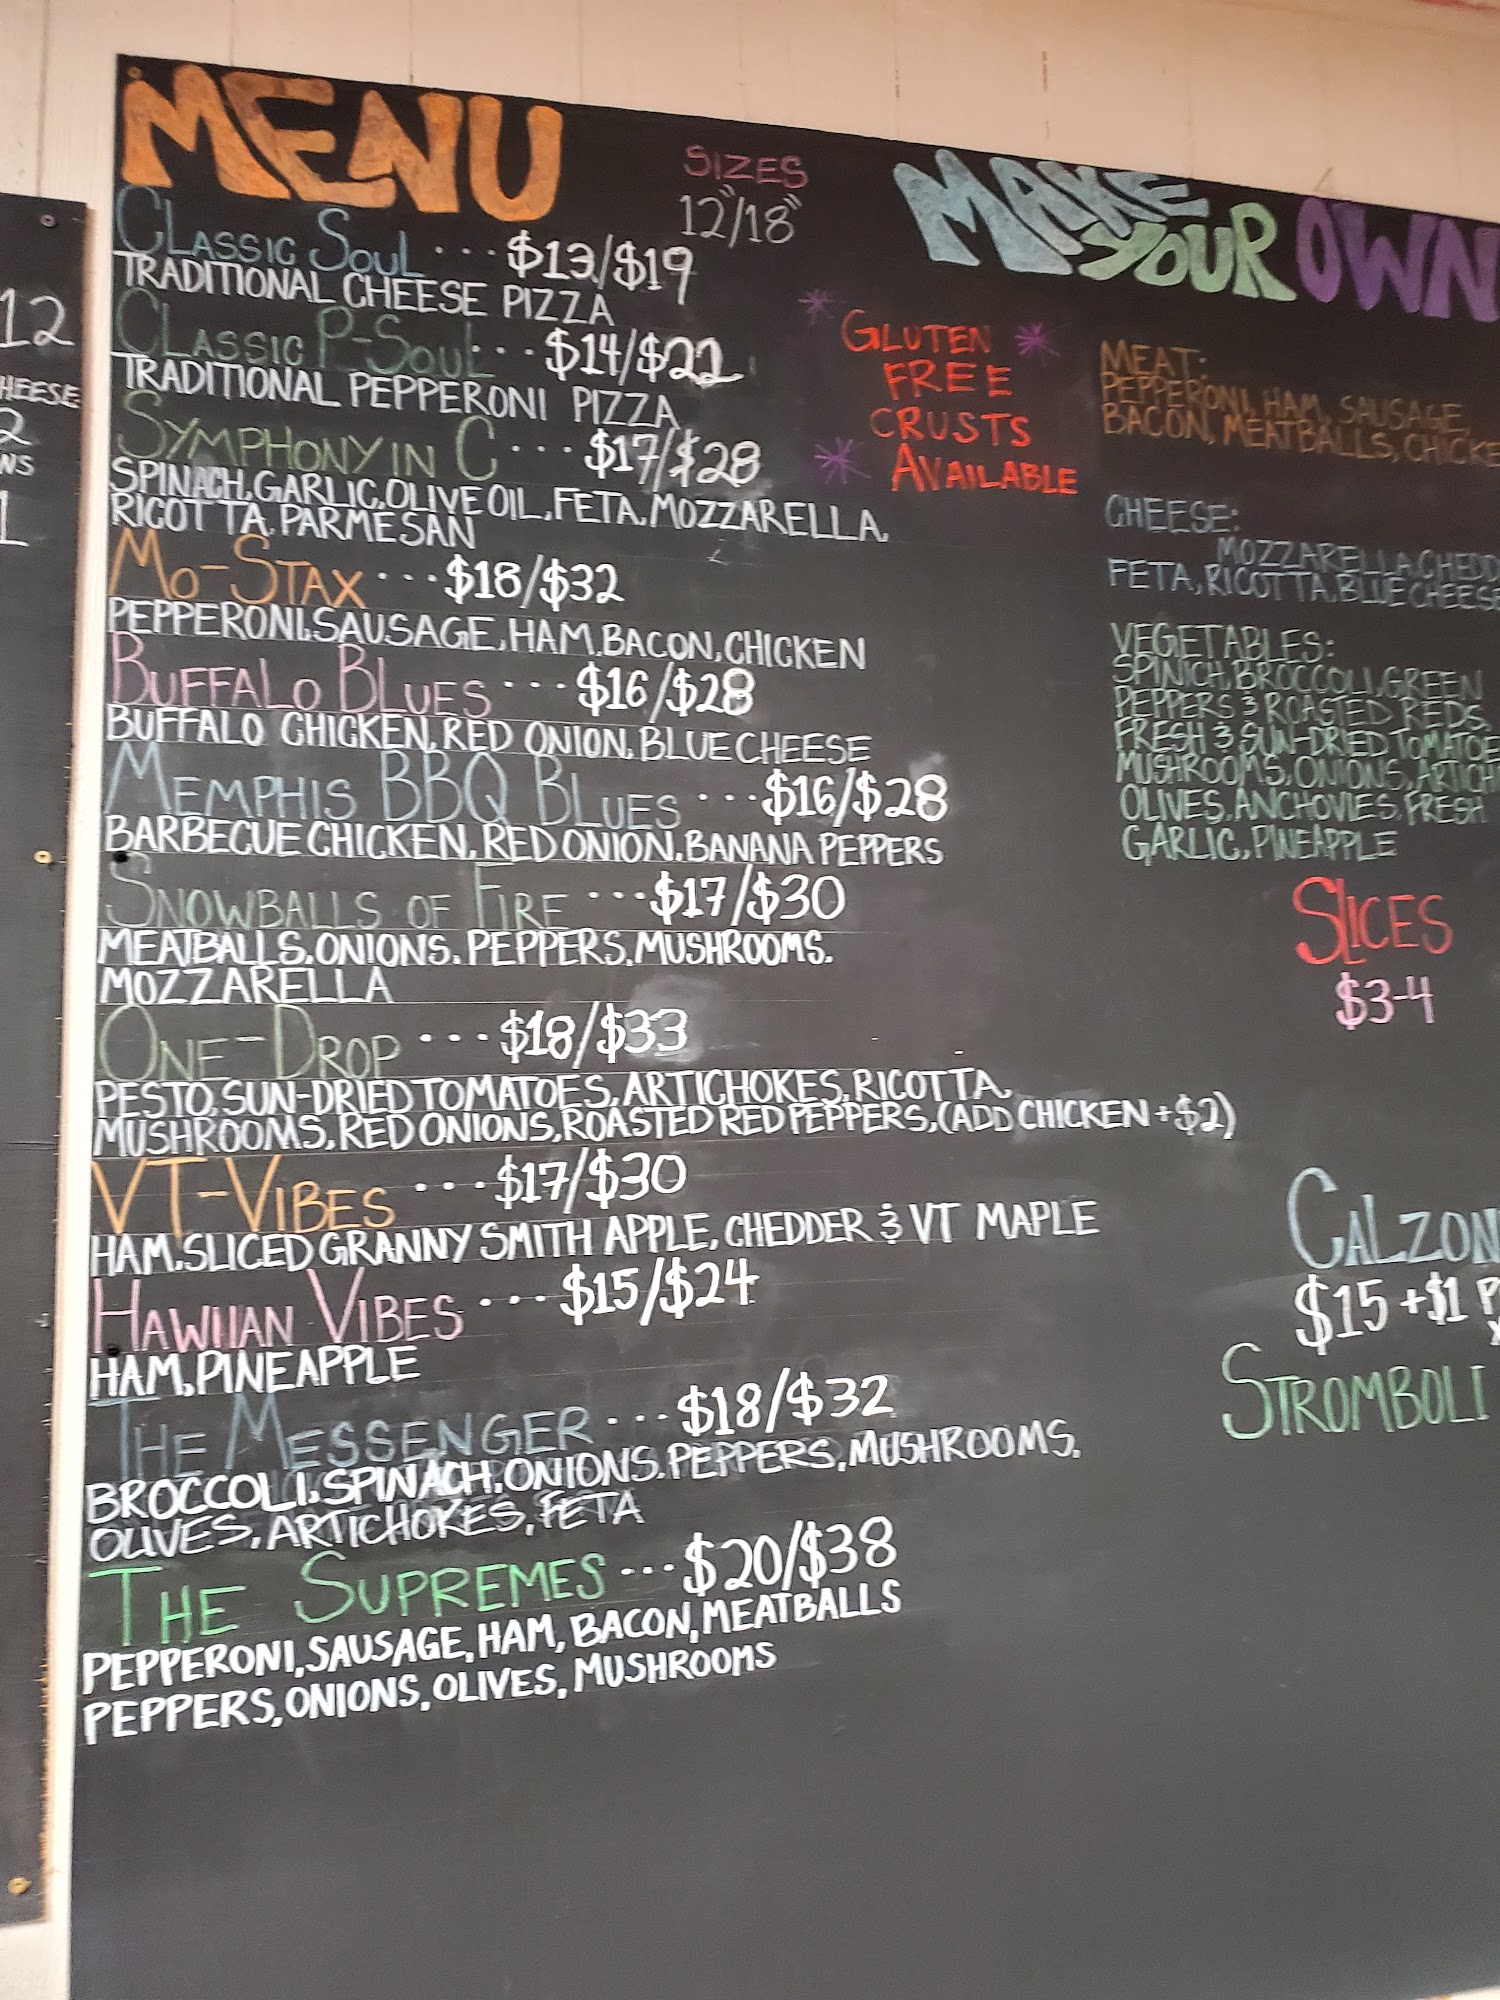 12
HEESE
2
WS
MENU
SIZES
12"/18"
CLASSIC SOUL ··· $13/$19
TRADITIONAL CHEESE PIZZA
CLASSIC P-SOUL ··· $14/$22
TRADITIONAL PEPPERONI PIZZA
SYMPHONY IN C ··· $17/$28
SPINACH, GARLIC, OLIVE OIL, FETA, MOZZARELLA,
RICOTTA, PARMESAN
MO-STAX ··· $18/$32
PEPPERONI, SAUSAGE, HAM, BACON, CHICKEN
BUFFALO BLUES ··· $16/$28
BUFFALO CHICKEN, RED ONION, BLUE CHEESE
MEMPHIS BBQ BLUES ··· $16/$28
BARBECUE CHICKEN, RED ONION, BANANA PEPPERS
SNOWBALLS OF FIRE ··· $17/$30
MEATBALLS, ONIONS, PEPPERS, MUSHROOMS,
MOZZARELLA
ONE-DROP ··· $18/$33
PESTO, SUN-DRIED TOMATOES, ARTICHOKES, RICOTTA,
MUSHROOMS, RED ONIONS, ROASTED RED PEPPERS, (ADD CHICKEN + $2)
VT-VIBES ··· $17/$30
HAM, SLICED GRANNY SMITH APPLE, CHEDDER & VT MAPLE
HAWIIAN VIBES ··· $15/$24
HAM, PINEAPPLE
THE MESSENGER ··· $18/$32
BROCCOLI, SPINACH, ONIONS, PEPPERS, MUSHROOMS,
OLIVES, ARTICHOKES, FETA
THE SUPREMES ··· $20/$38
PEPPERONI, SAUSAGE, HAM, BACON, MEATBALLS
PEPPERS, ONIONS, OLIVES, MUSHROOMS
GLUTEN
FREE
CRUSTS
AVAILABLE
MAKE
YOUR OWN
MEAT:
PEPPERONI, HAM, SAUSAGE,
BACON, MEATBALLS, CHICKE
CHEESE:
MOZZARELLA, CHEDD
FETA, RICOTTA, BLUE CHEESE
VEGETABLES:
SPINICH, BROCCOLI, GREEN
PEPPERS & ROASTED REDS,
FRESH & SUN-DRIED TOMATOE
MUSHROOMS, ONIONS, ARTICH
OLIVES, ANCHOVIES, FRESH
GARLIC, PINEAPPLE
SLICES
$3-4
CALZON
$15 +$1 P
STROMBOLI